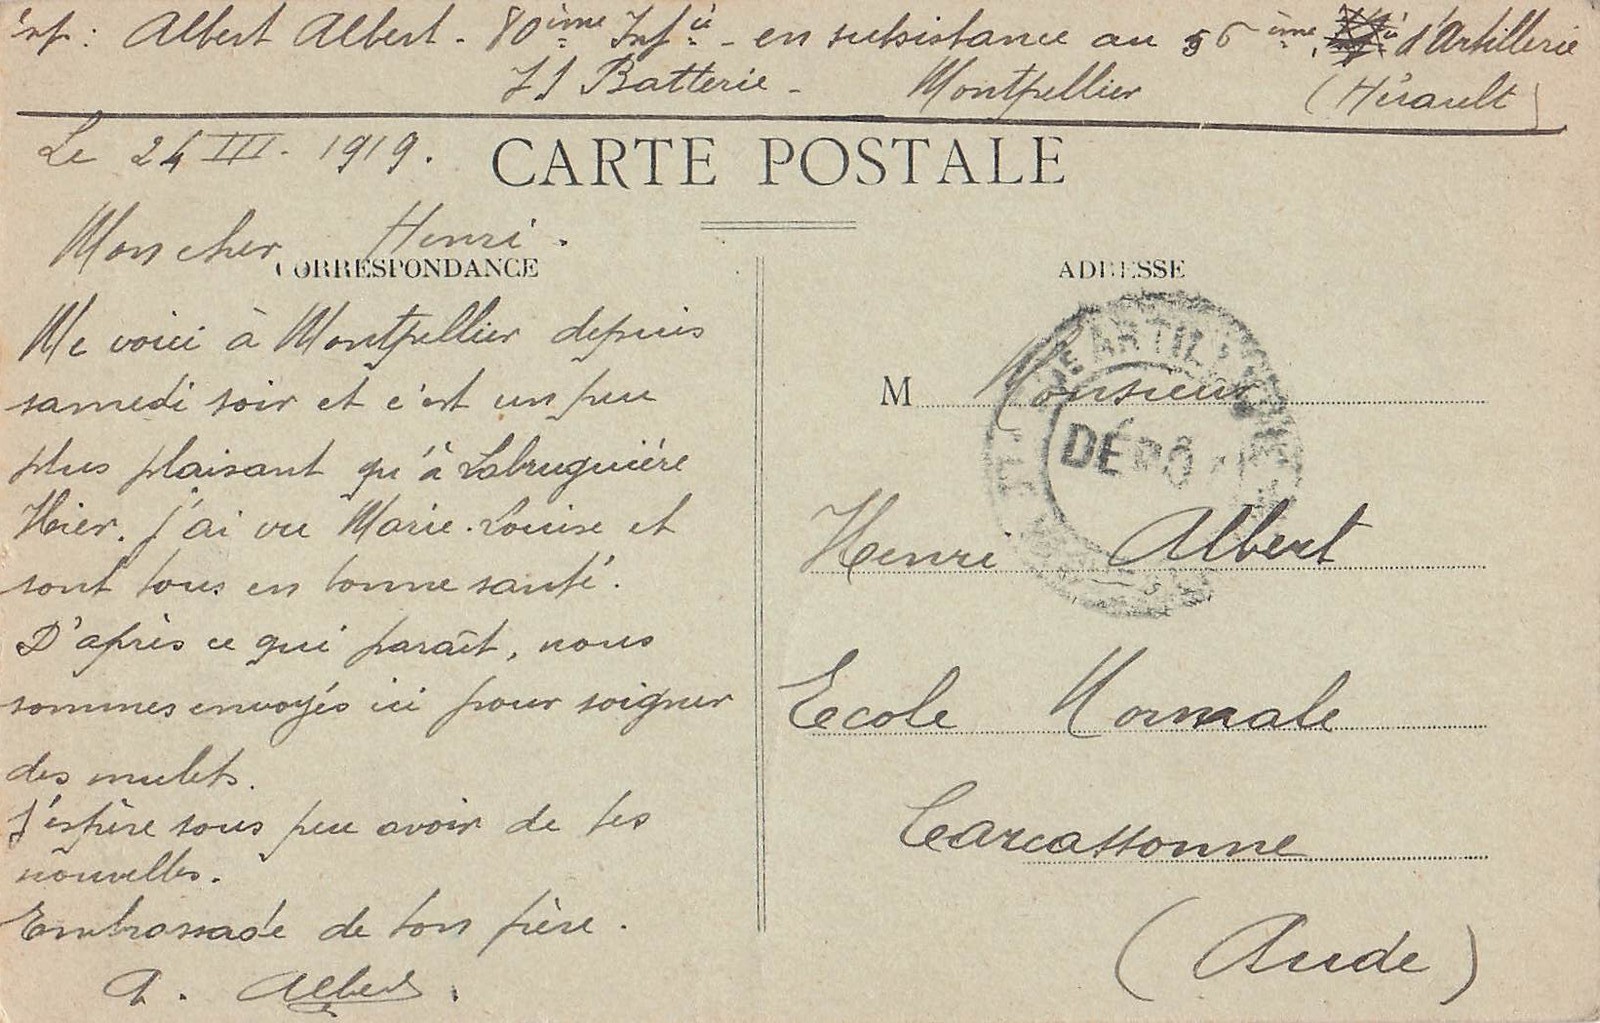 Exp: Albert Albert - 80ième Infie - en subsistance au 56ième d'Artillerie
71 Batterie - Montpellier (Hérault)
Le 24 III - 1919.
CARTE POSTALE
Mon cher Henri.
CORRESPONDANCE
Me voici à Montpellier depuis
samedi soir et c'est un peu
plus plaisant qu'à Labruguière
Hier, j'ai vu Marie-Louise et
sont tous en bonne santé.
D'après ce qui paraît, nous
sommes envoyés ici pour soigner
des mulets.
J'espère sous peu avoir de tes
nouvelles.
Embrassade de ton frère.
A. Albert.
ADRESSE
M Monsieur
Henri Albert
Ecole Normale
Carcassonne
(Aude)
ARTILLERIE
DÉPÔT